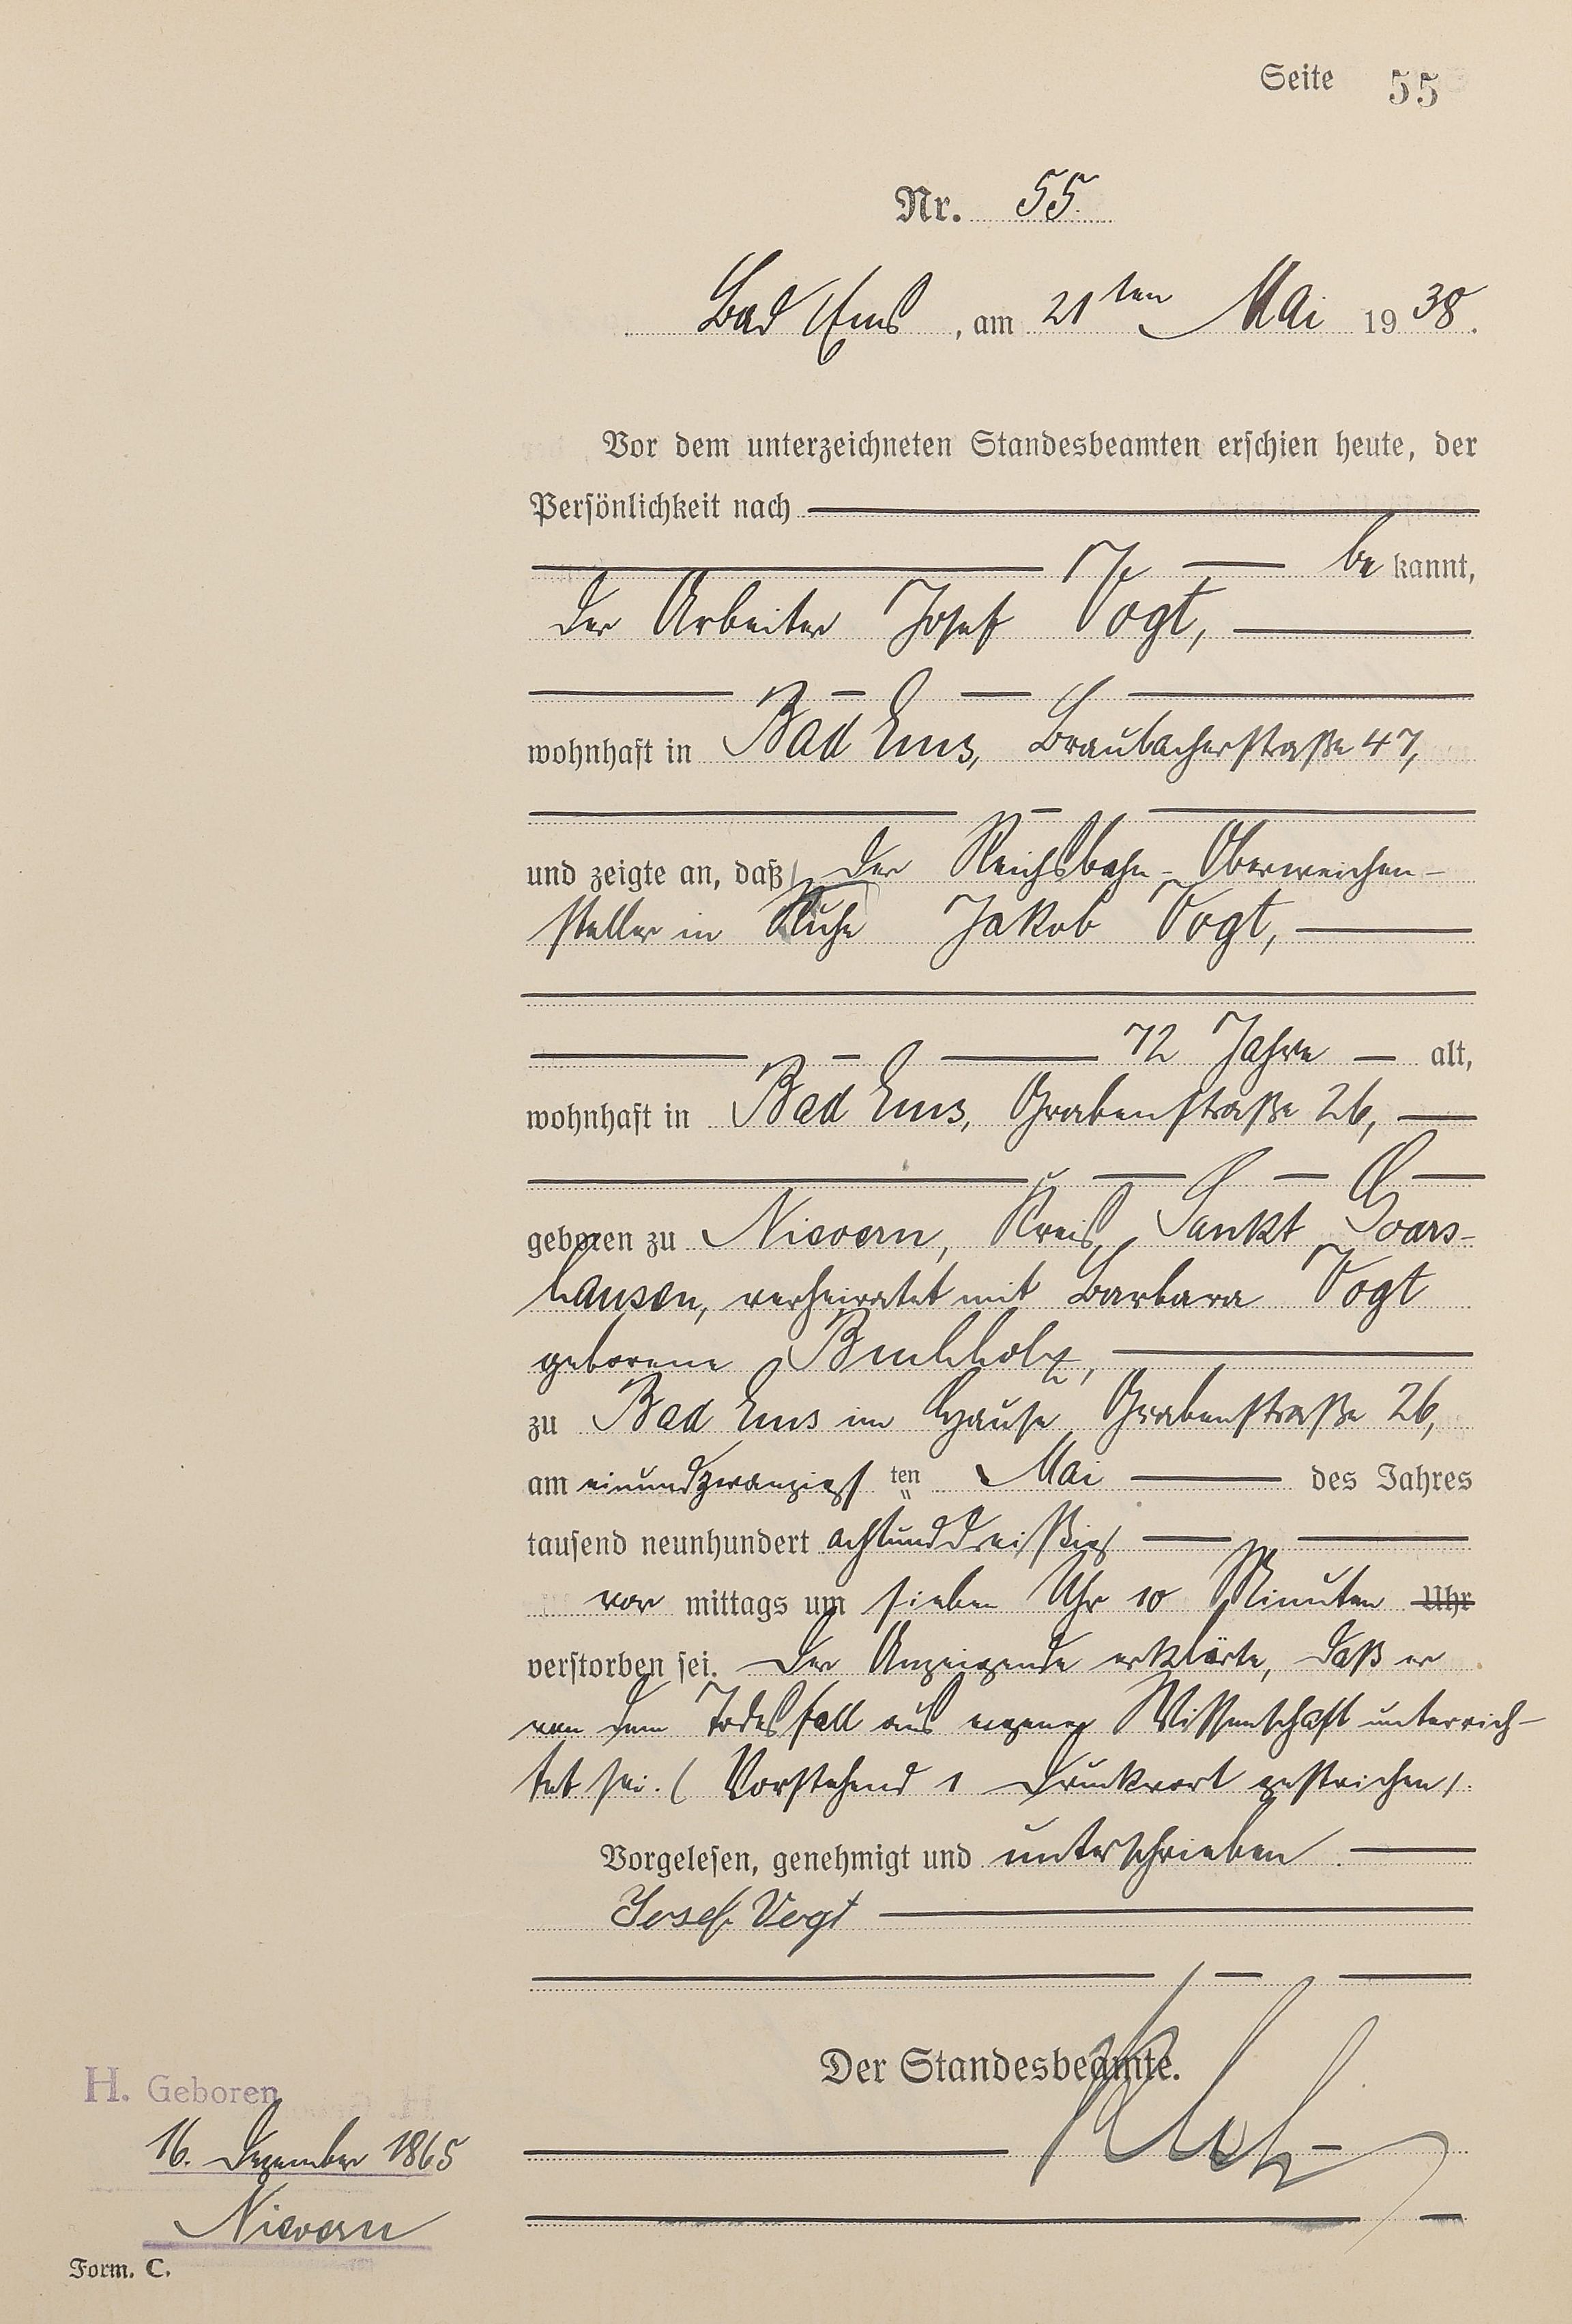 Seite 55
Nr. 55.
Bad Ems, am 21ten Mai 1938.
Vor dem unterzeichneten Standesbeamten erschien heute, der
Persönlichkeit nach
bekannt,
der Arbeiter Josef Vogt,
wohnhaft in Bad Ems, Braubacherstraße 47,
und zeigte an, daß der Reichsbahn-Oberweichen-
steller in Ruhe Jakob Vogt,
72 Jahre alt,
wohnhaft in Bad Ems, Grabenstraße 26,
geboren zu Nievern, Kreis Sankt Goars-
hausen, verheiratet mit Barbara Vogt
geborene Buchholz,
zu Bad Ems im Hause Grabenstraße 26,
am einundzwanzigsten Mai des Jahres
tausend neunhundert achtunddreißig
vor mittags um sieben Uhr 10 Minuten Uhr
verstorben sei. Der Anzeigende erklärte, daß er
von dem Todesfall aus eigener Wissenschaft unterrich-
tet sei. (Vorstehend 1 Druckwort gestrichen).
Vorgelesen, genehmigt und unterschrieben
Josef Vogt
Der Standesbeamte.
H. Geboren
16. Dezember 1865
Nievern
Form. C.